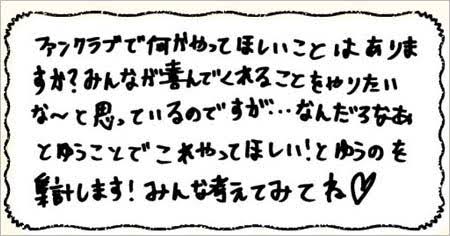 ファンクラブで何かやってほしいことはありま
すか?みんなが喜んでくれることをやりたい
な〜と思っているのですが…なんだろなあ
とゆうことでこれやってほしい!とゆうのを
集計します!みんな考えてみてね♡